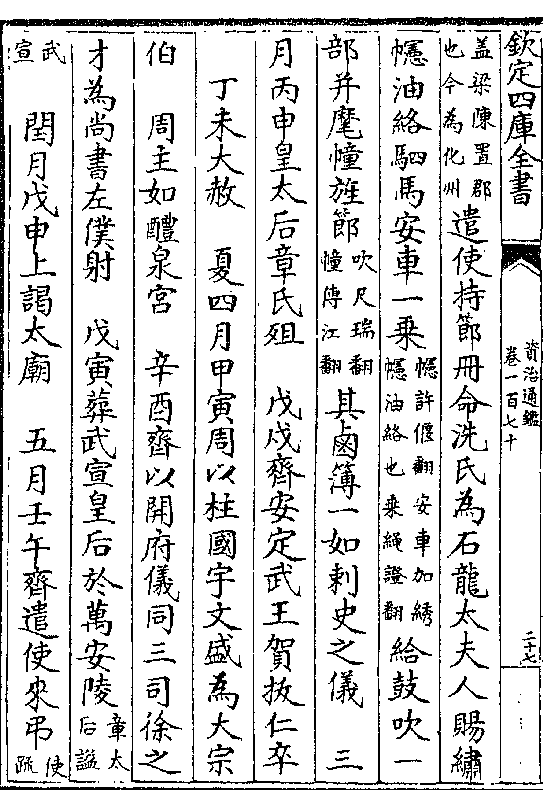 欽定四庫全書
資治通鑑
卷一百七十
二十七
盖梁陳置郡也今為化州遣使持節冊命洗氏為石龍太夫人賜繡
幰油絡駟馬安車一乗幰許偃翻安車加綉幰油絡也乗繩證翻給鼓吹一
部并麾幢旌節吹尺瑞翻幢傳江翻其鹵簿一如刺史之儀　三
月丙申皇太后章氏殂　戊戍齊安定武王賀抜仁卒
丁未大赦　夏四月甲寅周以柱國宇文盛為大宗
伯　周主如醴泉宮　辛酉齊以開府儀同三司徐之
才為尚書左僕射　戊寅葬武宣皇后於萬安陵章太后諡
武宣　閏月戊申上謁太廟　五月壬午齊遣使來弔使疏